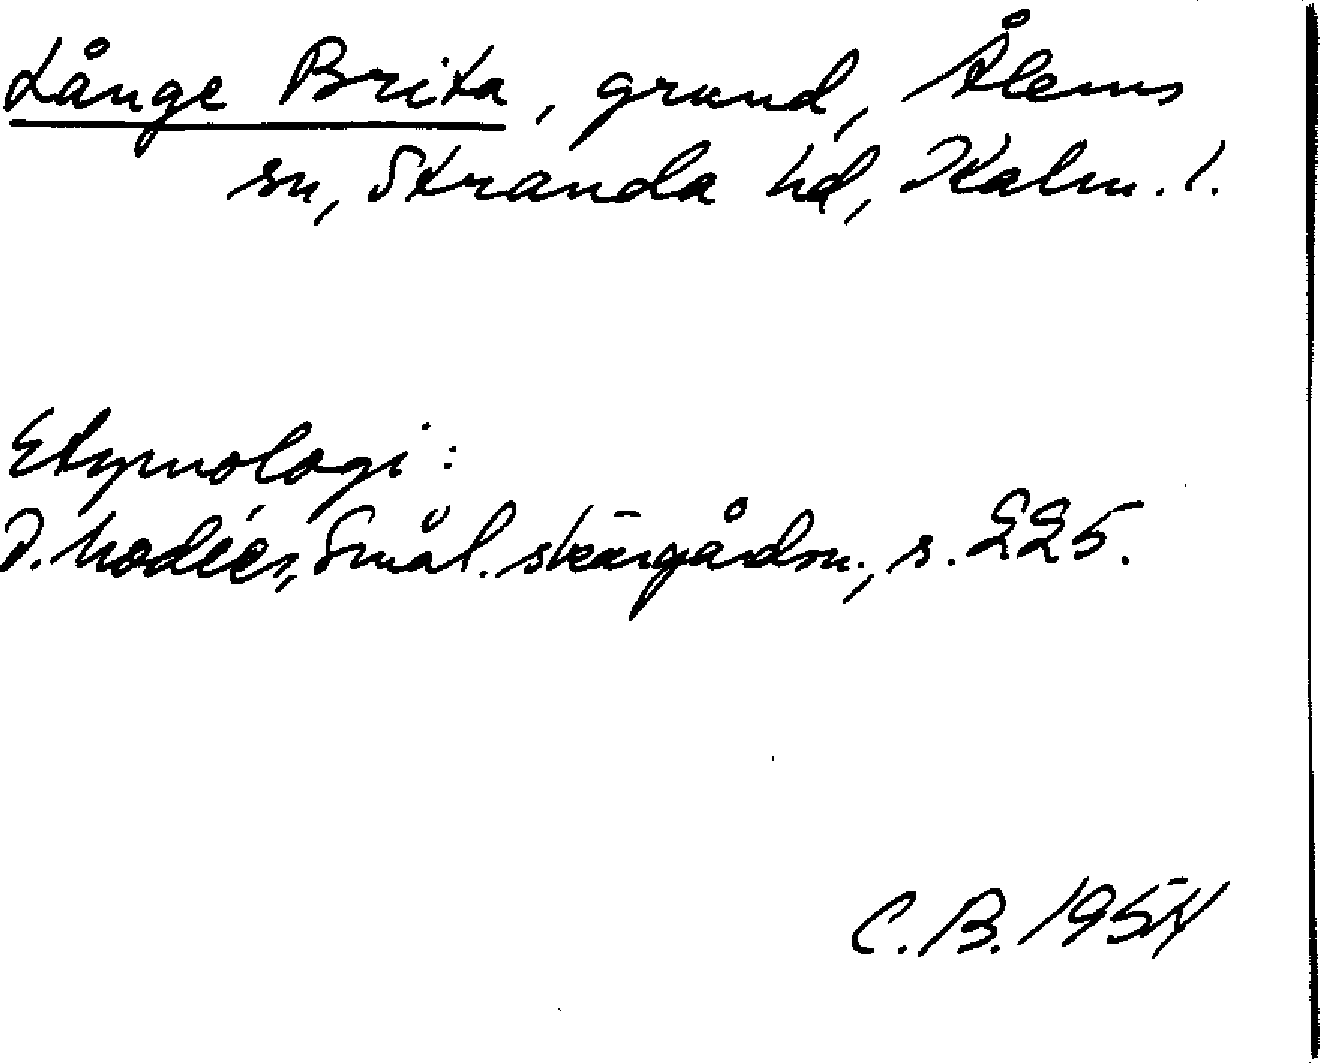 Långe Brita, grund, Ålems
sn, Stranda hd, Kalm. l.
Etymologi:
I. Modéer, Smål. skärgårdsn., s. 225.
C.B. 1954